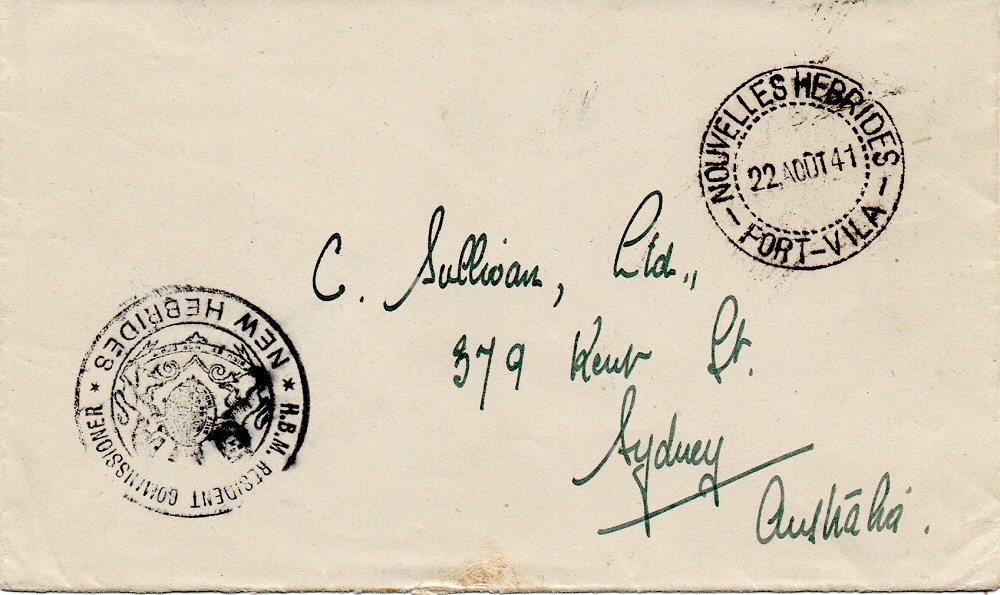 NOUVELLES HEBRIDES
22 AOÛT 41
- PORT-VILA -
C. Sullivan, Ltd.,,
379 Kent St.
Sydney
Australia.
NEW HEBRIDES
* H.B.M. RESIDENT COMMISSIONER *